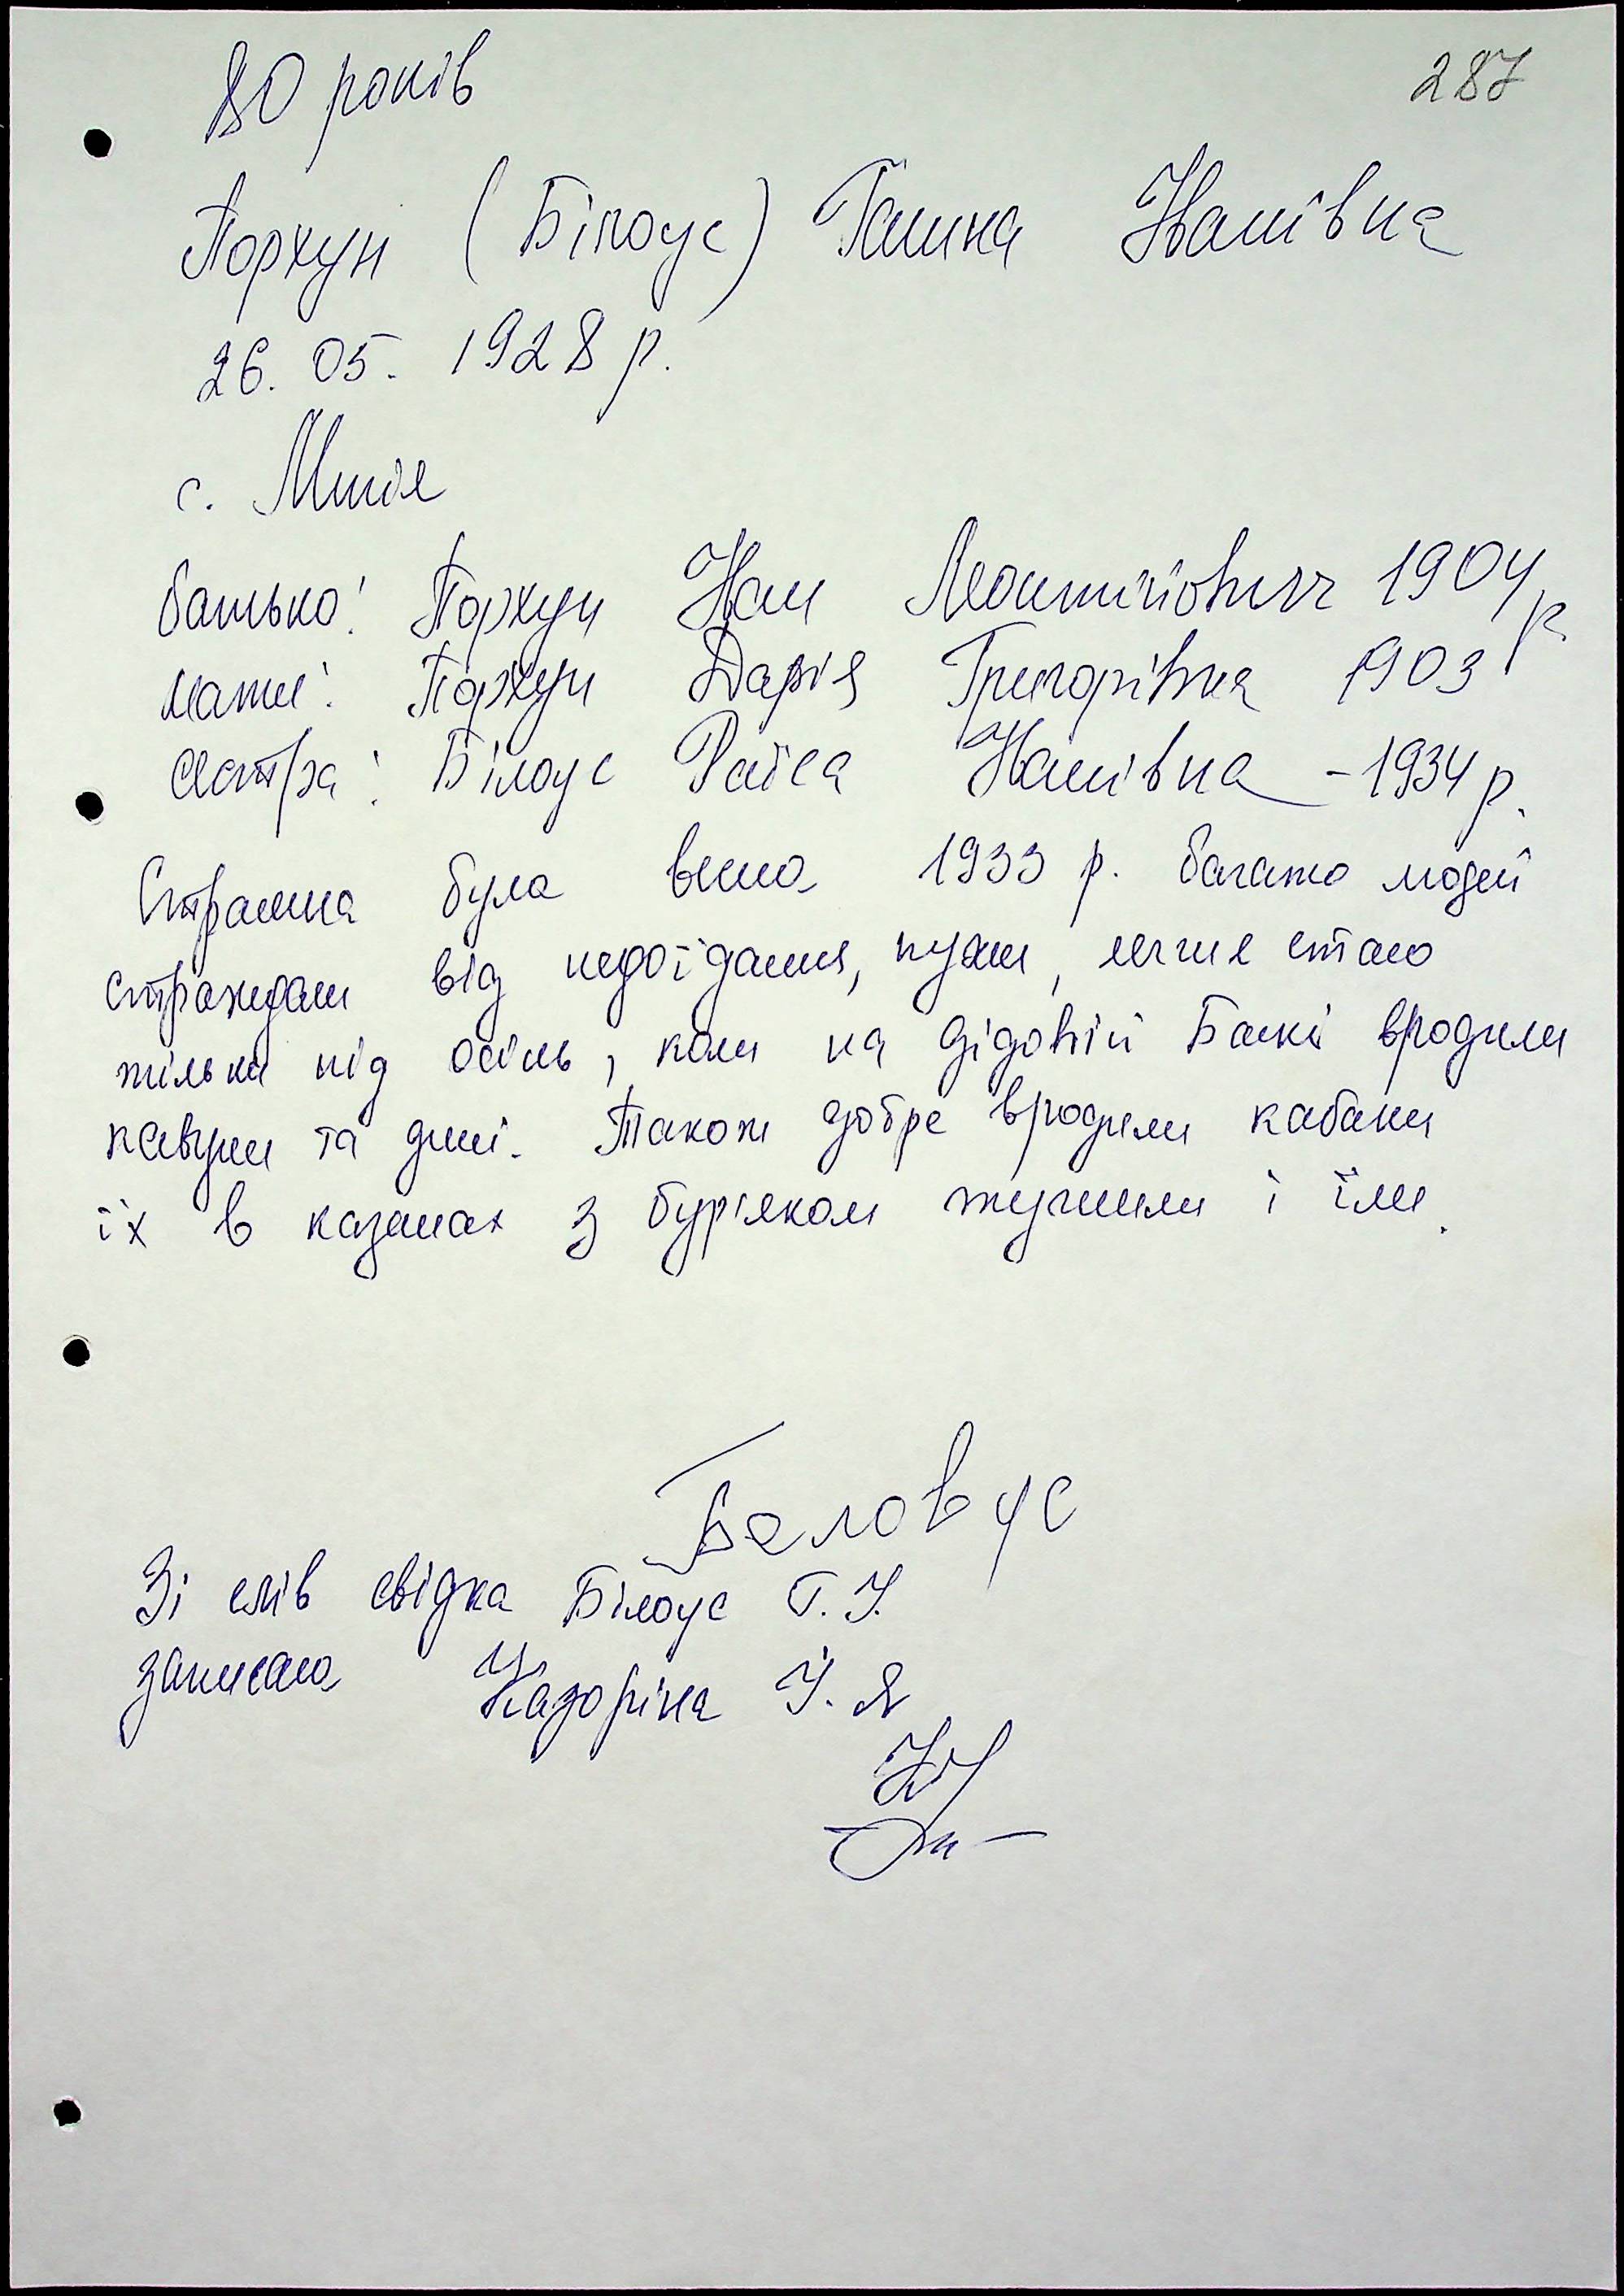 287
80 років
Порхун (Білоус) Ганна Іванівна
26. 05. 1928 р.
с. Мигія
батько: Порхун Іван Леонтійович 1904 р.
мати: Порхун Дарія Григорівна 1903
сестра: Білоус Раїса Іванівна - 1934 р.
Страшна була весна 1933 р. багато людей
страждали від недоїдання, пухли, легше стало
тільки під осінь, коли на Дідовій Балкі вродили
кавуни та дині. Також добре вродили кабаки
їх в казанах з бур'яком тушили і їли.
Беловус
Зі слів свідка Білоус Г. І.
записала Казоріна І. Я